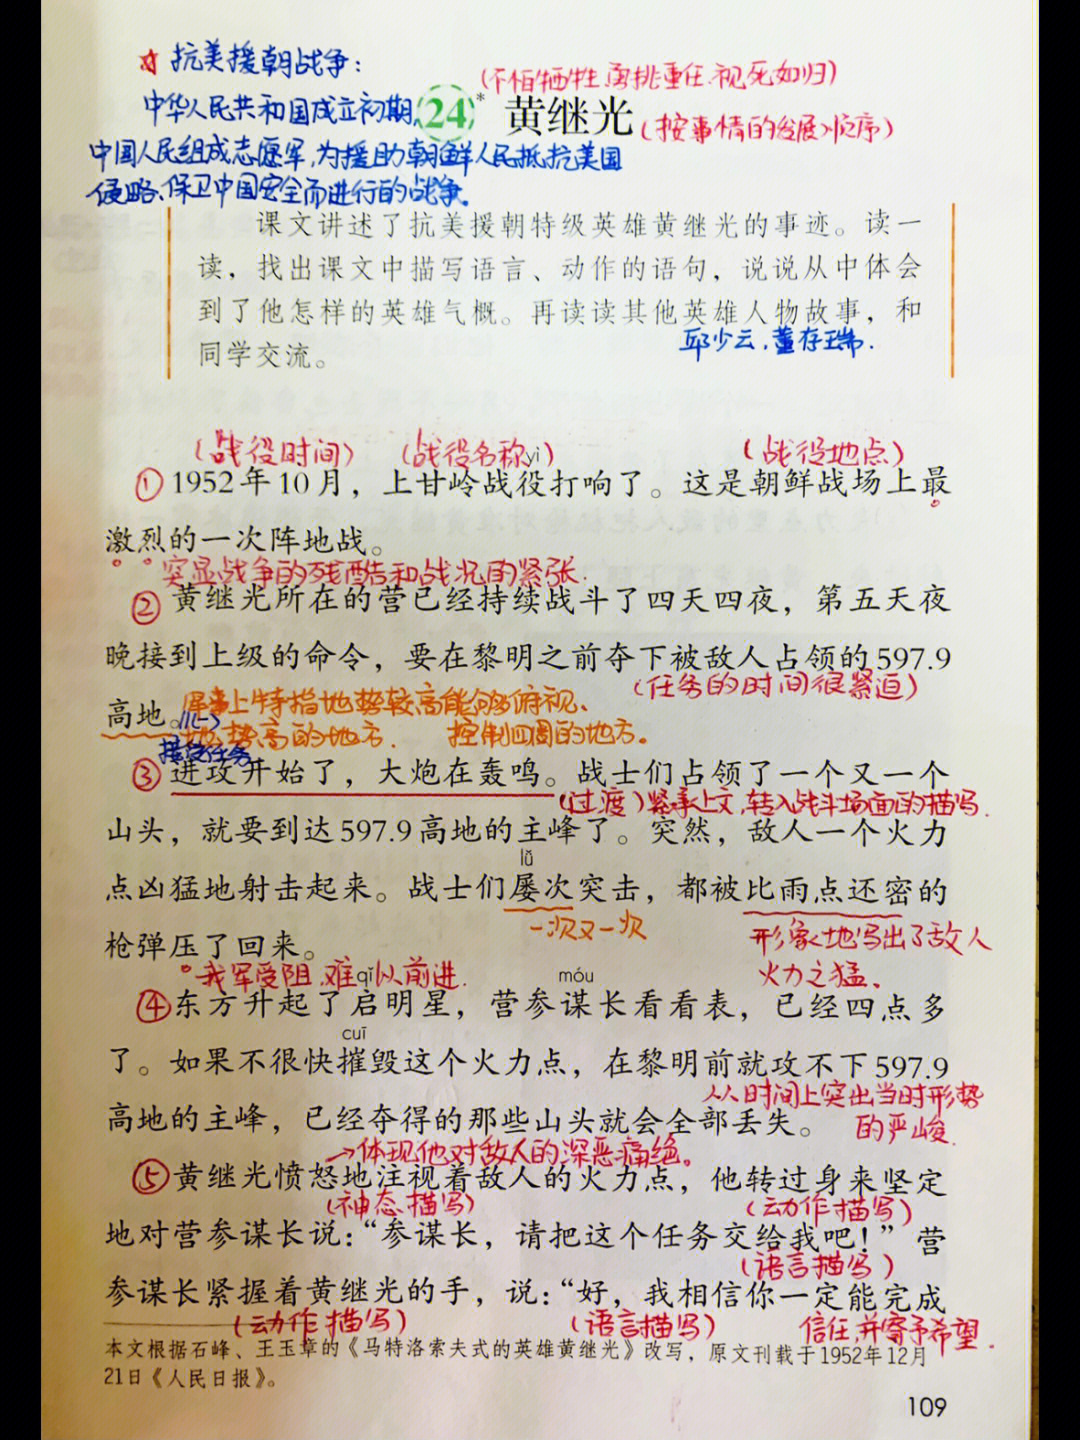 ☆ 抗美援朝战争：
(不怕牺牲、勇挑重任、视死如归)
中华人民共和国成立初期，
24* 黄继光
(按事情的发展顺序)
中国人民组成志愿军，为援助朝鲜人民抵抗美国
侵略、保卫中国安全而进行的战争。
课文讲述了抗美援朝特级英雄黄继光的事迹。读一
读，找出课文中描写语言、动作的语句，说说从中体会
到了他怎样的英雄气概。再读读其他英雄人物故事，和
邱少云、董存瑞.
同学交流。
(战役时间) (战役名称) (战役地点)
yì
①1952年10月，上甘岭战役打响了。这是朝鲜战场上最
激烈的一次阵地战。
突显战争的残酷和战况的紧张.
②黄继光所在的营已经持续战斗了四天四夜，第五天夜
晚接到上级的命令，要在黎明之前夺下被敌人占领的597.9
(任务的时间很紧迫)
高地。
军事上特指地势较高能够俯视、
地势高的地方. 控制四周的地方。
接受任务
③进攻开始了，大炮在轰鸣。战士们占领了一个又一个
(过渡)紧承上文,转入战斗场面的描写.
山头，就要到达597.9高地的主峰了。突然，敌人一个火力
lǚ
点凶猛地射击起来。战士们屡次突击，都被比雨点还密的
一次又一次
形象地写出了敌人
枪弹压了回来。
火力之猛.
我军受阻,难以前进.
qǐ móu
④东方升起了启明星，营参谋长看看表，已经四点多
cuī
了。如果不很快摧毁这个火力点，在黎明前就攻不下597.9
从时间上突出当时形势
高地的主峰，已经夺得的那些山头就会全部丢失。
的严峻.
→体现他对敌人的深恶痛绝。
⑤黄继光愤怒地注视着敌人的火力点，他转过身来坚定
(神态描写) (动作描写)
地对营参谋长说：“参谋长，请把这个任务交给我吧！”营
(语言描写)
参谋长紧握着黄继光的手，说：“好，我相信你一定能完成
(动作描写) (语言描写) 信任,并寄予希望.
本文根据石峰、王玉章的《马特洛索夫式的英雄黄继光》改写，原文刊载于1952年12月
21日《人民日报》。
109